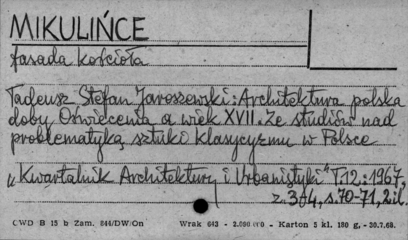 MIKULIŃCE
fasada kościoła
Tadeusz Stefan Jaroszewski: Architektura polska
doby Oświecenia a wiek XVII. Ze studiów nad
problematyką sztuki klasycyzmu w Polsce
„Kwartalnik Architektury i Urbanistyki" T.12:1967,
z.3/4, s.70-71, 2 il.
CWD B 15 b Zam. 844/DW/On Wrak 643 - 2.000.000 - Karton 5 kl. 180 g, - 30.7.68.